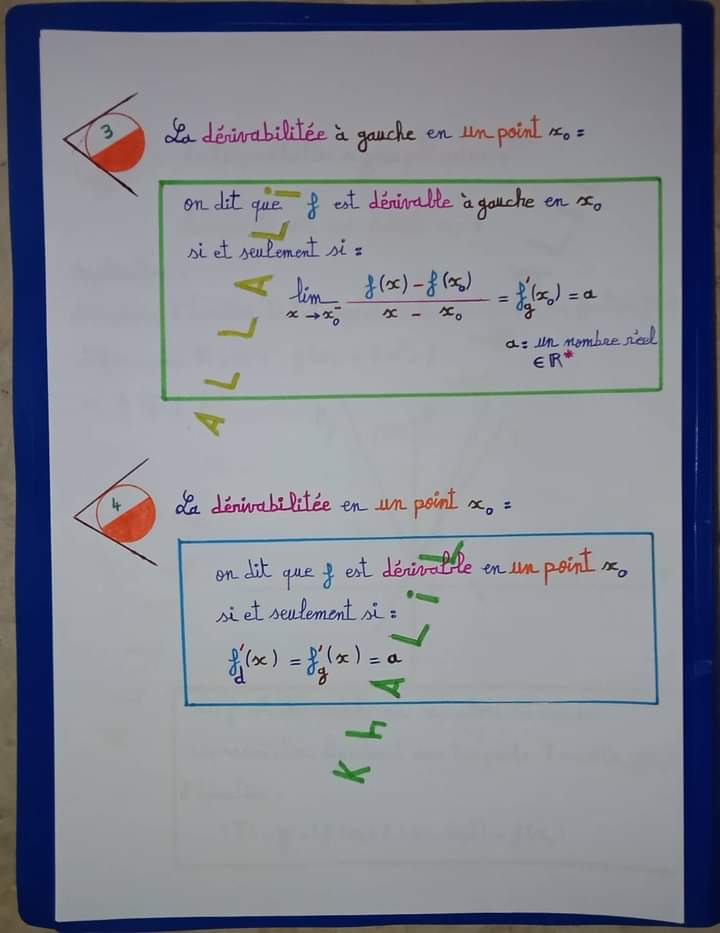 3
La dérivabilitée à gauche en un point x₀ =
on dit que f est dérivable à gauche en x₀
si et seulement si =
lim x→x₀⁻ (f(x) - f(x₀)) / (x - x₀) = f'g(x₀) = a
a = un nombre réel
∈ ℝ*
ALLALi
4
La dérivabilitée en un point x₀ =
on dit que f est dérivable en un point x₀
si et seulement si =
f'd(x) = f'g(x) = a
KhALiL